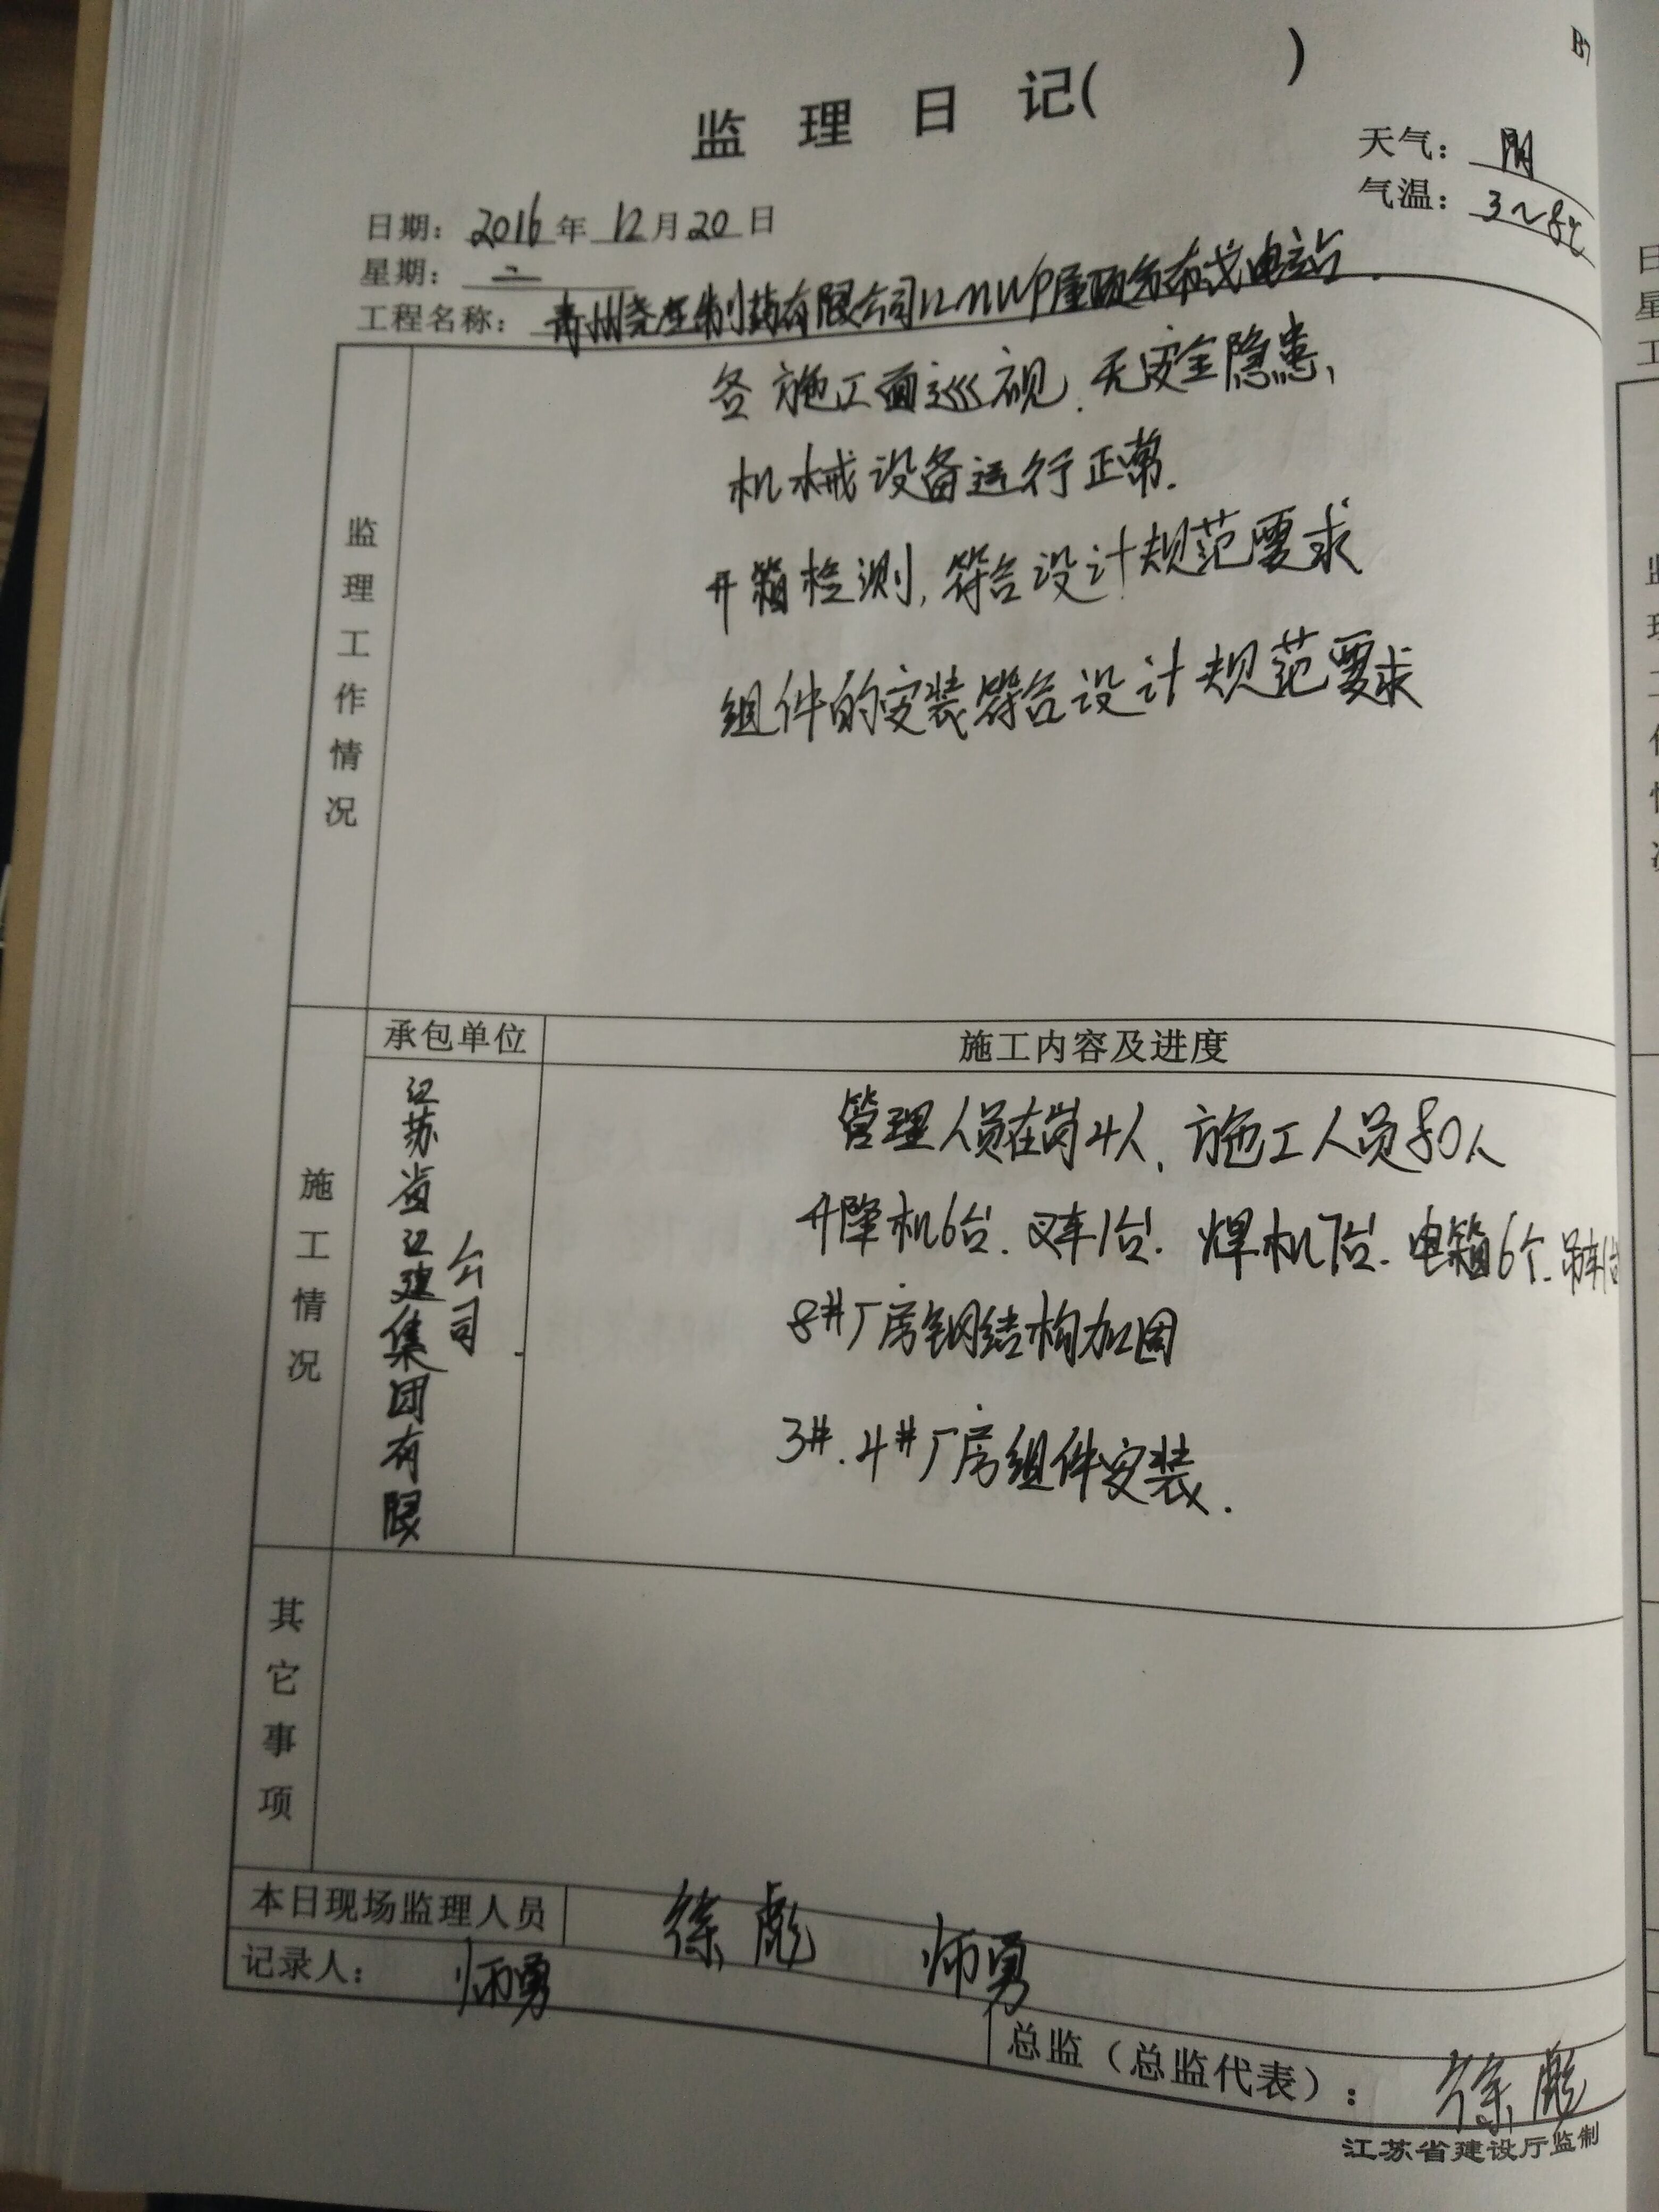 B7
监 理 日 记(            )
天气：阴
气温：3~8℃
日期：2016年12月20日
星期：二
工程名称：制药有限公司屋顶分布式电站
监理工作情况
各施工面巡视.无安全隐患,
机械设备运行正常.
开箱检测,符合设计规范要求
组件的安装符合设计规范要求
施工情况
承包单位
施工内容及进度
江苏省江建集团有限公司
管理人员在岗4人、施工人员80人
升降机6台.叉车1台.焊机7台.电箱6个.吊车1台
8#厂房钢结构加固
3#.4#厂房组件安装.
其它事项
本日现场监理人员 徐彪 师勇
记录人：师勇
总监（总监代表）：徐彪
江苏省建设厅监制
日
星
工